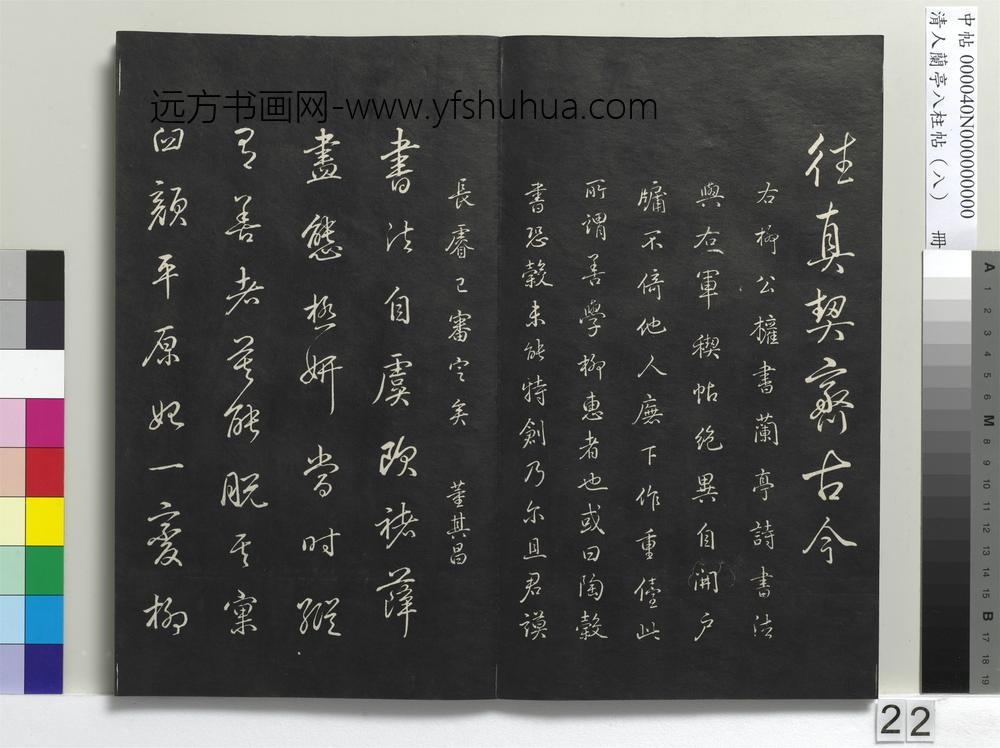 往真契齋古今
右柳公權書蘭亭詩書法
與右軍禊帖絶異自開户
牖不倚他人廡下作重儓此
所謂善學柳惠者也或曰陶穀
書恐穀未能特創乃尔且君謨
長睿已審定矣 董其昌
書法自虞歐褚薛
盡態極妍當时縱
有善者莫能脱其窠
臼顔平原始一變柳
远方书画网-www.yfshuhua.com
中帖 000040N000000000
清人蘭亭八柱帖(八) 冊
22
A 1 2 3 4 5 6 M 8 9 10 11 12 13 14 15 B 17 18 19